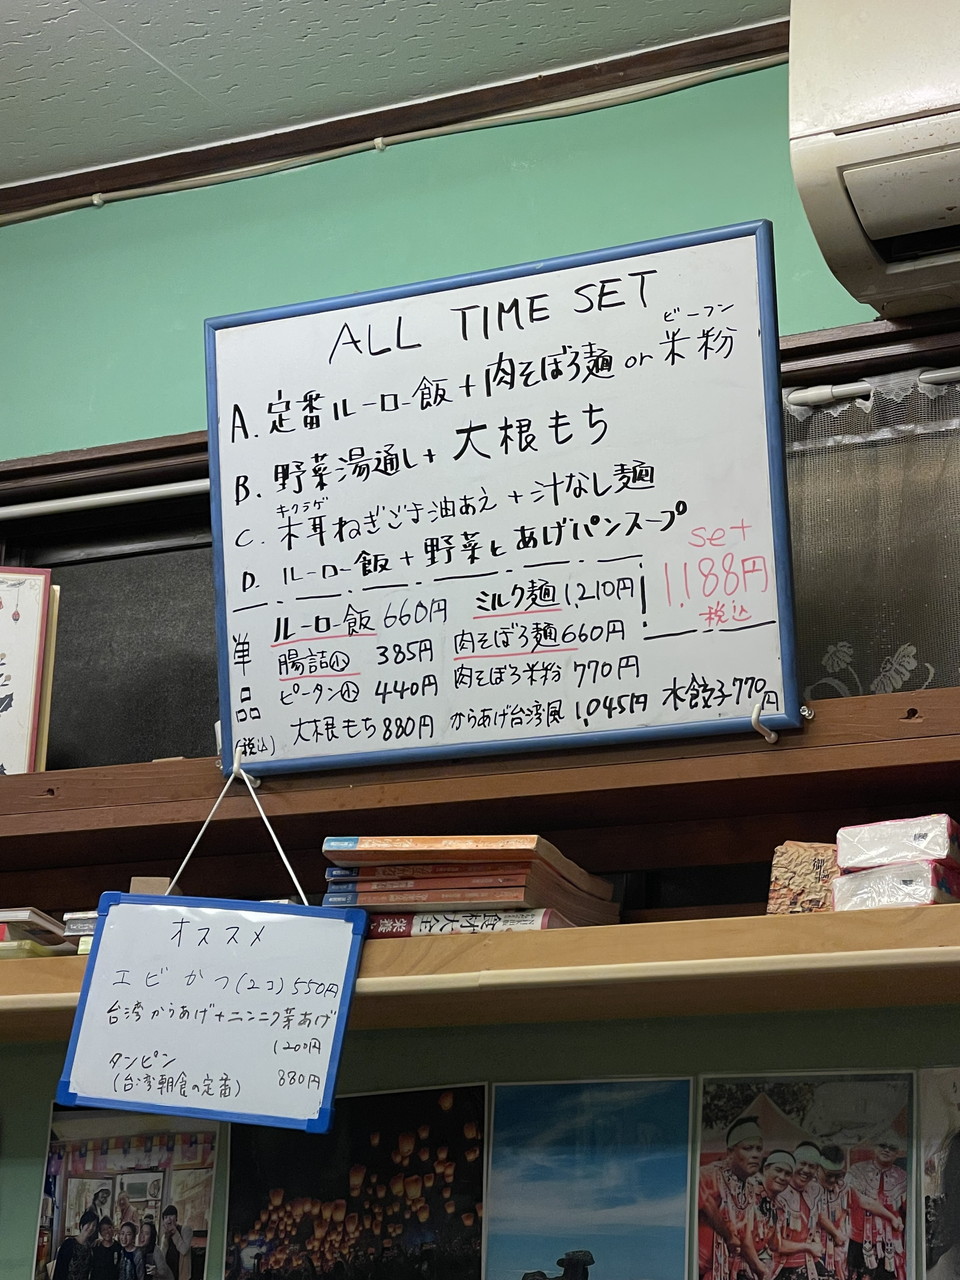 ALL TIME SET
ビーフン
A. 定番ルーロー飯 + 肉そぼろ麺 or 米粉
B. 野菜湯通し + 大根もち
キクラゲ
C. 木耳ねぎごま油あえ + 汁なし麺
D. ルーロー飯 + 野菜とあげパンスープ
set
1,188円
税込
単品
(税込)
ルーロー飯 660円
腸詰小 385円
ピータン小 440円
大根もち 880円
ミルク麺 1,210円
肉そぼろ麺 660円
肉そぼろ米粉 770円
からあげ台湾風 1,045円
水餃子 770円
食材大全
オススメ
エビかつ(2コ) 550円
台湾からあげ+ニンニク芽あげ
1200円
タンピン
(台湾朝食の定番) 880円